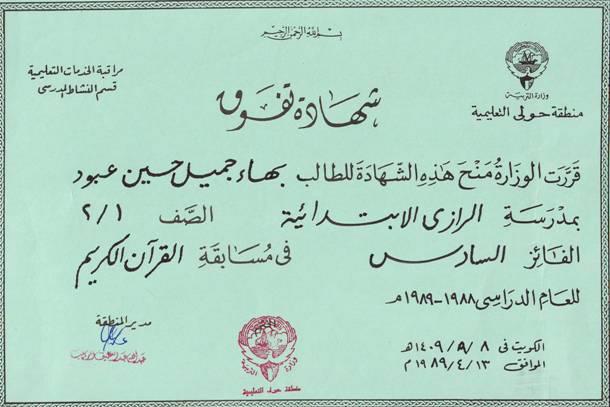 بسم الله الرحمن الرحيم
وزارة التربية
منطقة حولي التعليمية
مراقبة الخدمات التعليمية
قسم النشاط المدرسى
شهادة تفوق
قررت الوزارة منح هذه الشهادة للطالب بهاء جميل حسين عبود
بمدرسة الرازى الابتدائية الصف ٢/١
الفائز السادس فى مسابقة القرآن الكريم
للعام الدراسى ١٩٨٨-١٩٨٩م
الكويت فى ٨ / ٩ / ١٤٠٩هـ
الموافق ١٣ / ٤ / ١٩٨٩م
مدير المنطقة
وزارة التربية
منطقة حولي التعليمية